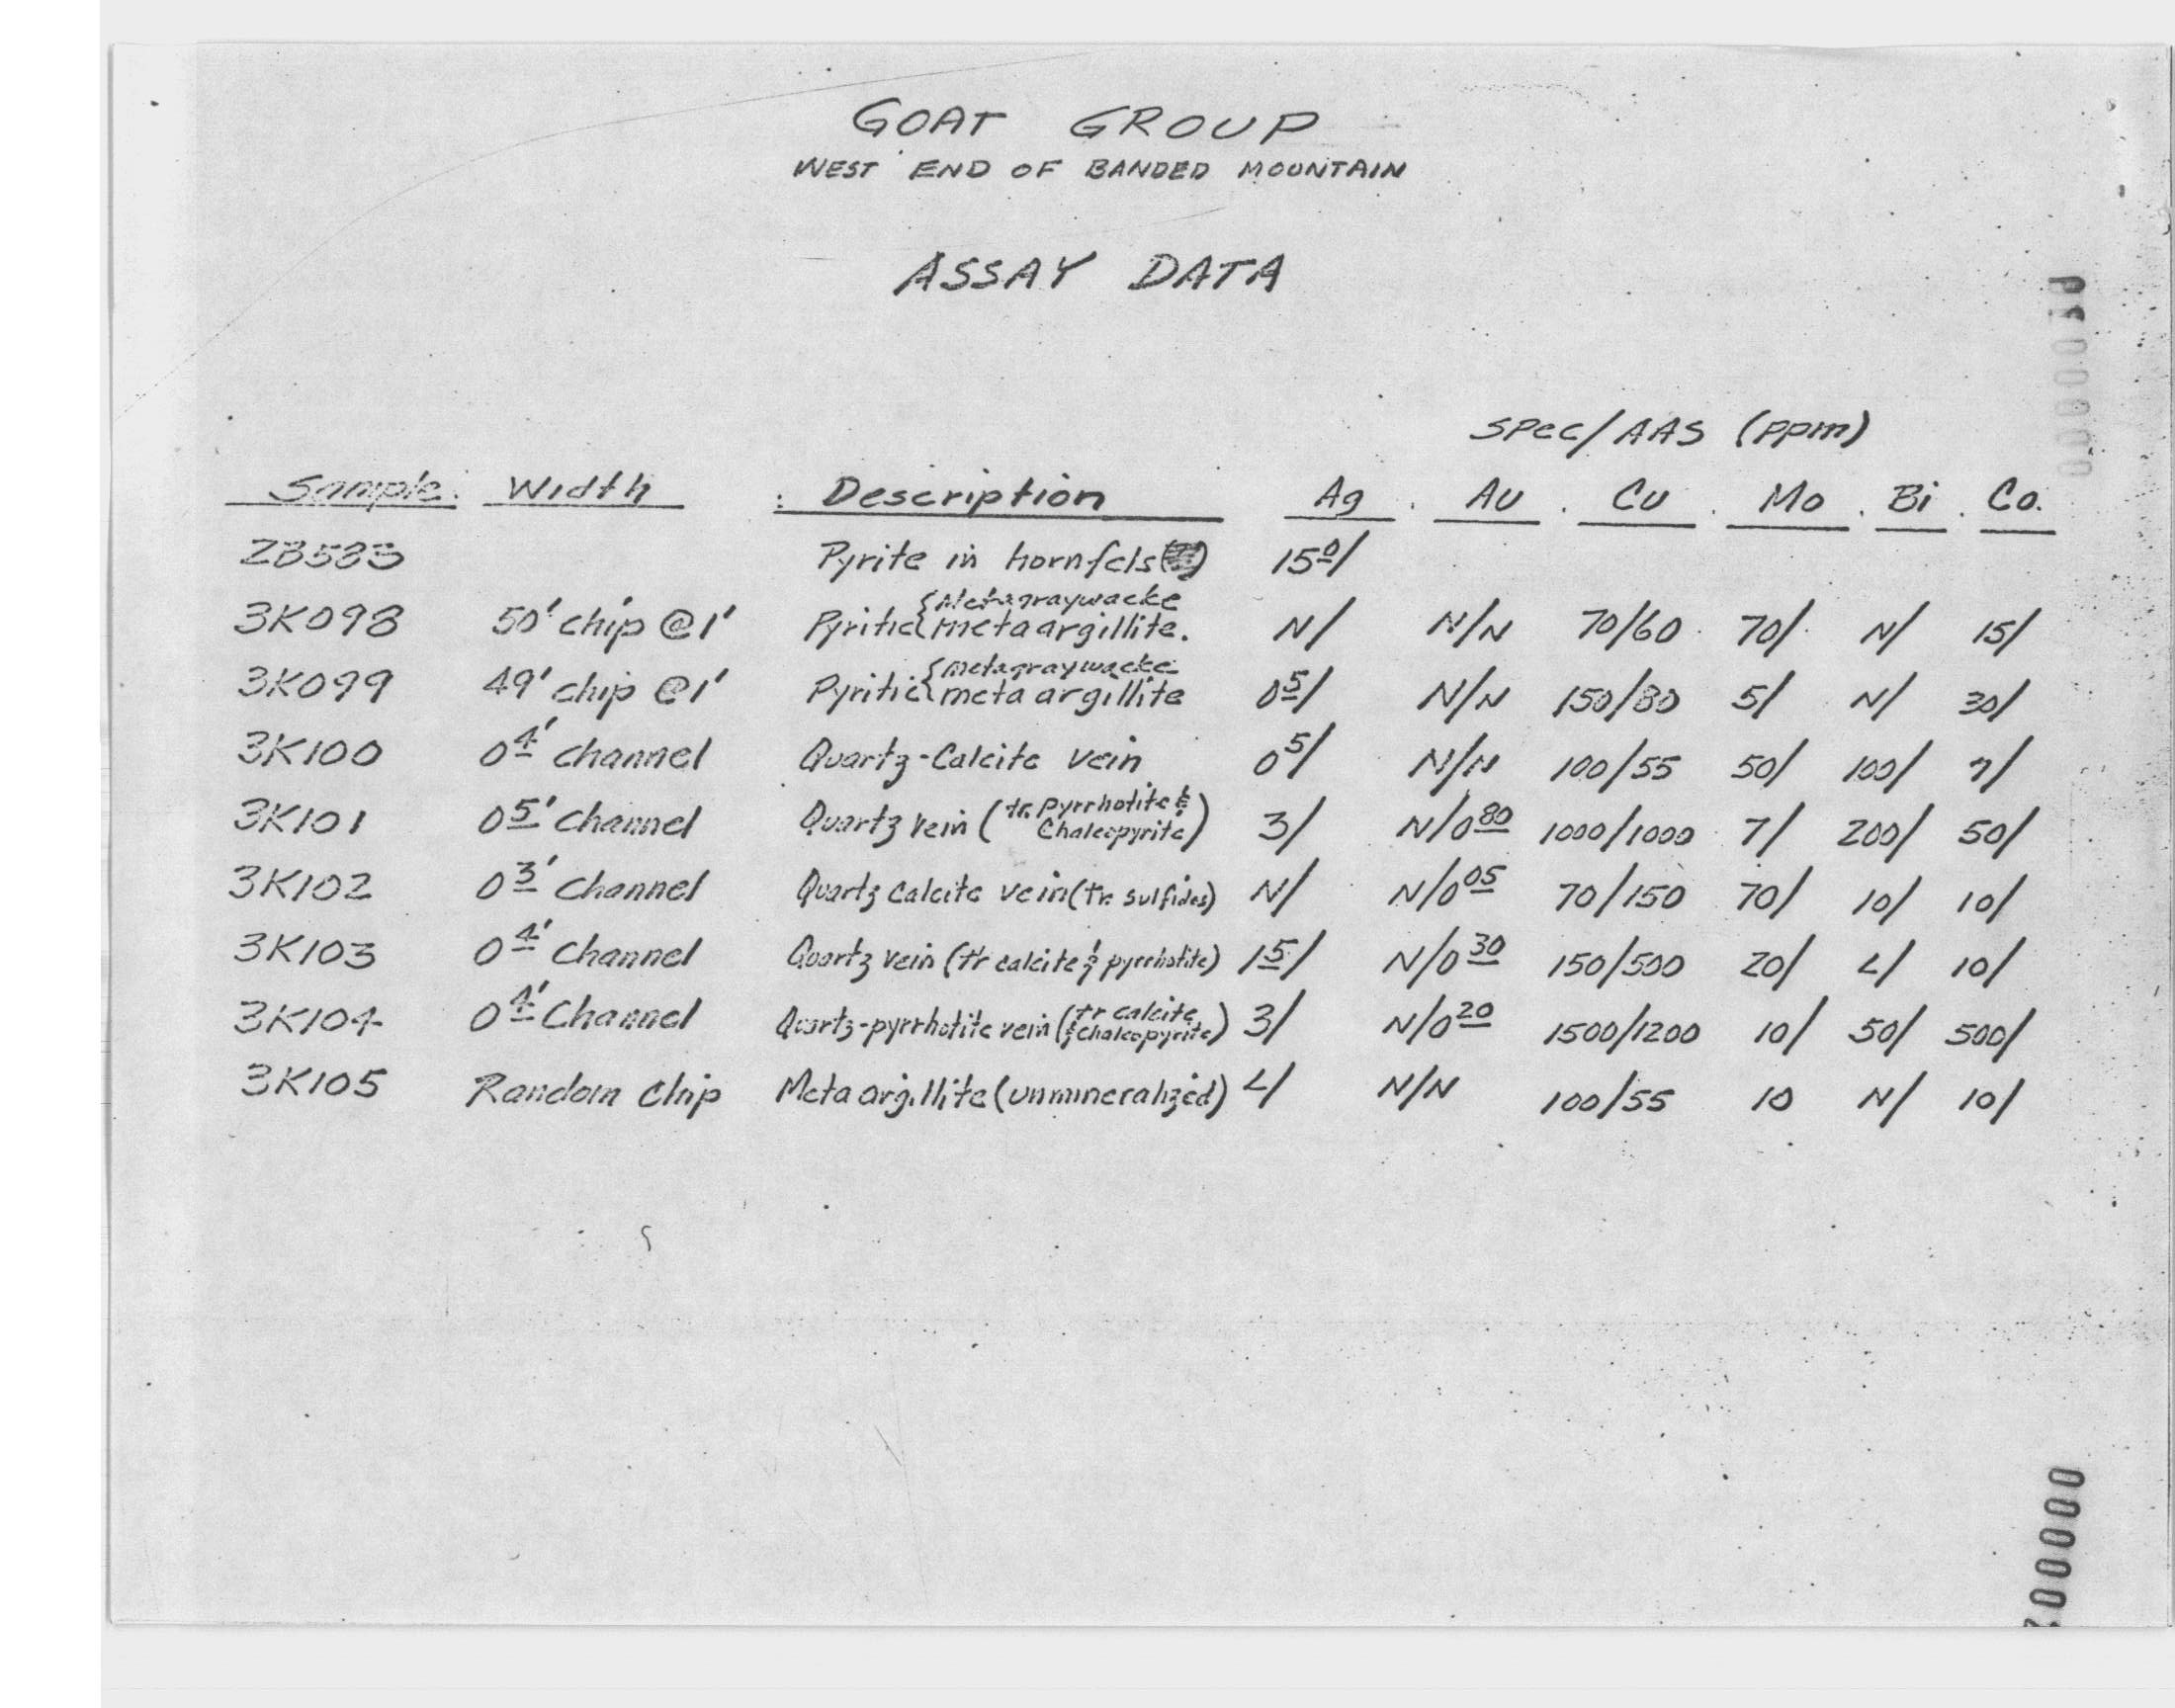 GOAT GROUP
WEST END OF BANDED MOUNTAIN
ASSAY DATA
SPEC/AAS (ppm)
Sample Width Description Ag Au Cu Mo Bi Co.
ZB583 Pyrite in hornfels 15 0/
3K098 50' chip @ 1' Pyritic { Metagraywacke meta argillite. N/ N/N 70/60 70/ N/ 15/
3K099 49' chip @ 1' Pyritic { metagraywacke meta argillite 0 5/ N/N 150/80 5/ N/ 30/
3K100 0 4' channel Quartz-Calcite vein 0 5/ N/N 100/55 50/ 100/ 7/
3K101 0 5' channel Quartz vein (tr. pyrrhotite & Chalcopyrite) 3/ N/0 80 1000/1000 7/ 200/ 50/
3K102 0 3' Channel Quartz Calcite vein (tr. sulfides) N/ N/0 05 70/150 70/ 10/ 10/
3K103 0 4' Channel Quartz vein (tr calcite & pyrrhotite) 1 5/ N/0 30 150/500 20/ L/ 10/
3K104 0 4' Channel Quartz-pyrrhotite vein (tr calcite & chalcopyrite) 3/ N/0 20 1500/1200 10/ 50/ 500/
3K105 Random Chip Meta argillite (unmineralized) L/ N/N 100/55 10 N/ 10/